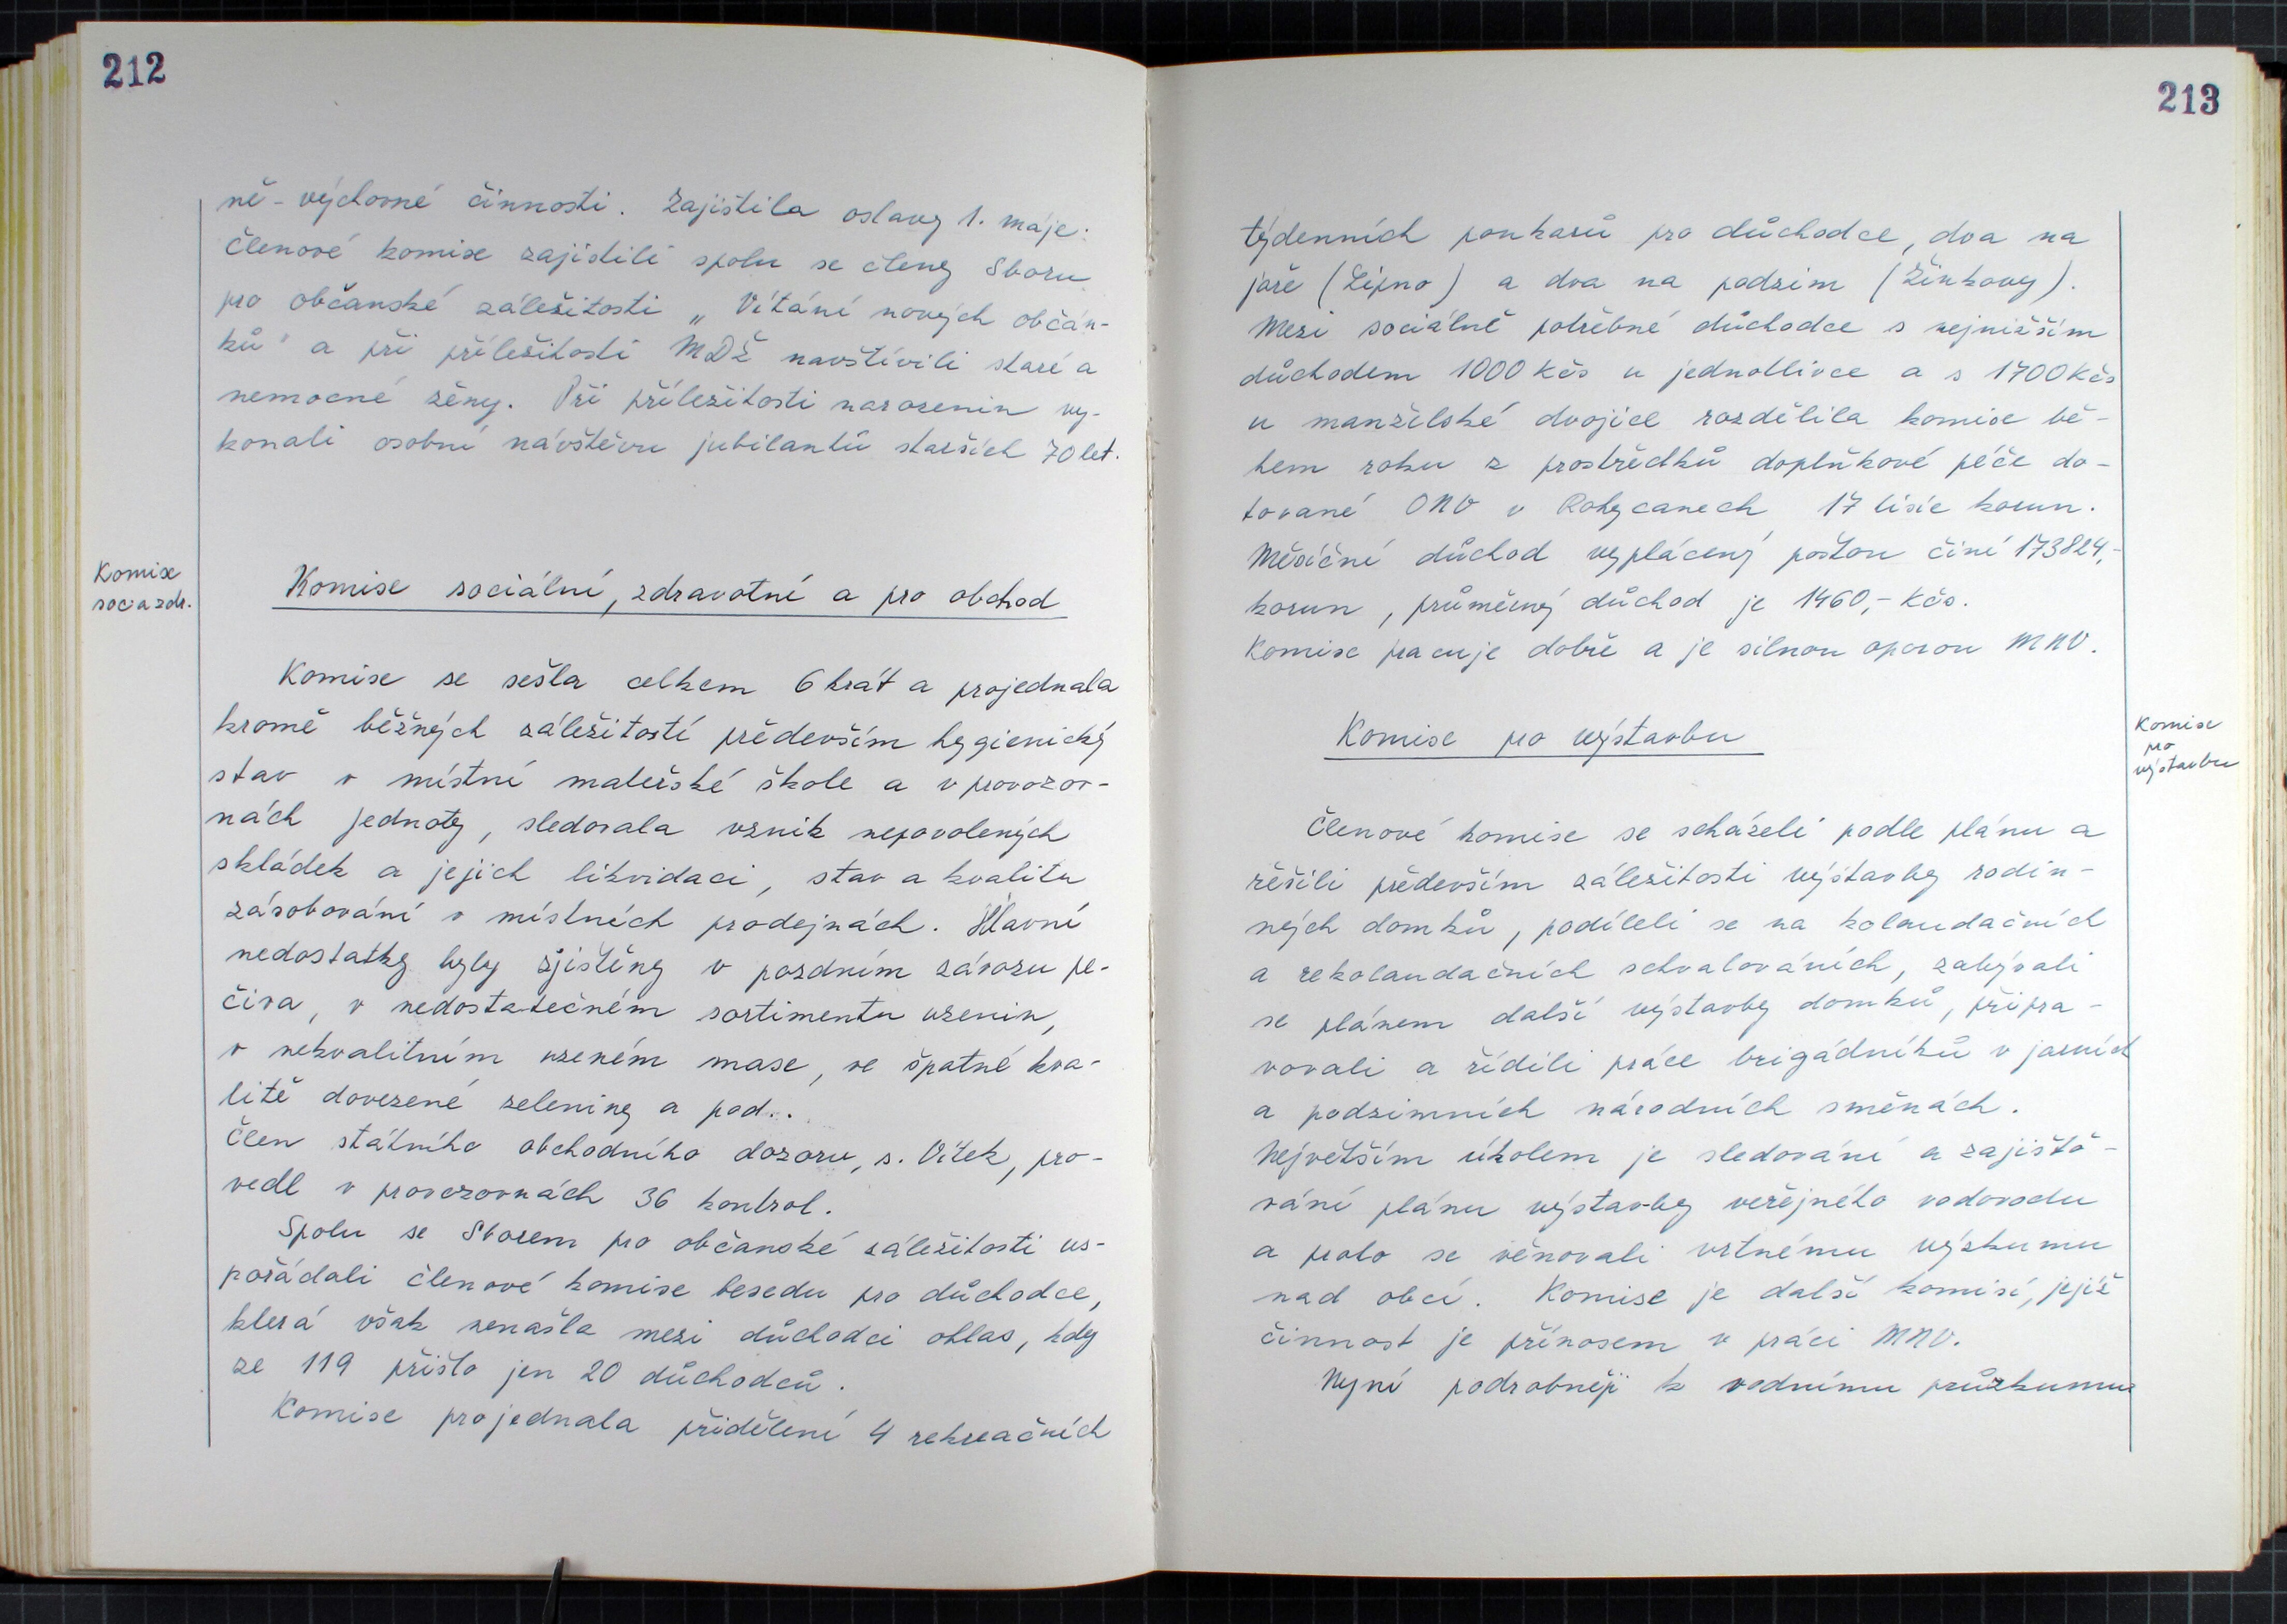 212
ně-výchovné činnosti. Zajistila oslavy 1. máje.
Členové komise zajistili spolu se členy Sboru
pro občanské záležitosti „Vítání nových občán-
ků" a při příležitosti MDŽ navštívili staré a
nemocné ženy. Při příležitosti narozenin vy-
konali osobní návštěvu jubilantů starších 70 let.
Komise
soc. a zdr.
Komise sociální, zdravotní a pro obchod
Komise se sešla celkem 6 krát a projednala
kromě běžných záležitostí především hygienický
stav v místní mateřské škole a v provozov-
nách Jednoty, sledovala vznik nepovolených
skládek a jejich likvidaci, stav a kvalitu
zásobování v místních prodejnách. Hlavní
nedostatky byly zjištěny v pozdním závozu pe-
čiva, v nedostatečném sortimentu uzenin,
v nekvalitním uzeném mase, ve špatné kva-
litě dovezené zeleniny a pod..
Člen státního obchodního dozoru, s. Vítek, pro-
vedl v provozovnách 36 kontrol.
Spolu se Sborem pro občanské záležitosti us-
pořádali členové komise besedu pro důchodce,
která však nenašla mezi důchodci ohlas, kdy
ze 119 přišlo jen 20 důchodců.
Komise projednala přidělení 4 rekreačních
213
týdenních poukazů pro důchodce, dva na
jaře (Lipno) a dva na podzim (Žinkovy).
Mezi sociálně potřebné důchodce s nejnižším
důchodem 1000 Kčs u jednotlivce a s 1700 Kčs
u manželské dvojice rozdělila komise bě-
hem roku z prostředků doplňkové péče do-
tované ONV v Rokycanech 17 tisíc korun.
Měsíční důchod vyplácený poštou činí 173824,-
korun, průměrný důchod je 1460,- Kčs.
Komise pracuje dobře a je silnou oporou MNV.
Komise pro výstavbu
Komise
pro
výstavbu
Členové komise se scházeli podle plánu a
řešili především záležitosti výstavby rodin-
ných domků, podíleli se na kolaudačních
a rekolaudačních schvalováních, zabývali
se plánem další výstavby domků, připra-
vovali a řídili práce brigádníků v jarních
a podzimních národních směnách.
Největším úkolem je sledování a zajišťo-
vání plánu výstavby veřejného vodovodu
a proto se věnovali vrtnému výzkumu
nad obcí. Komise je další komisí, jejíž
činnost je přínosem v práci MNV.
Nyní podrobněji k vodnímu průzkumu